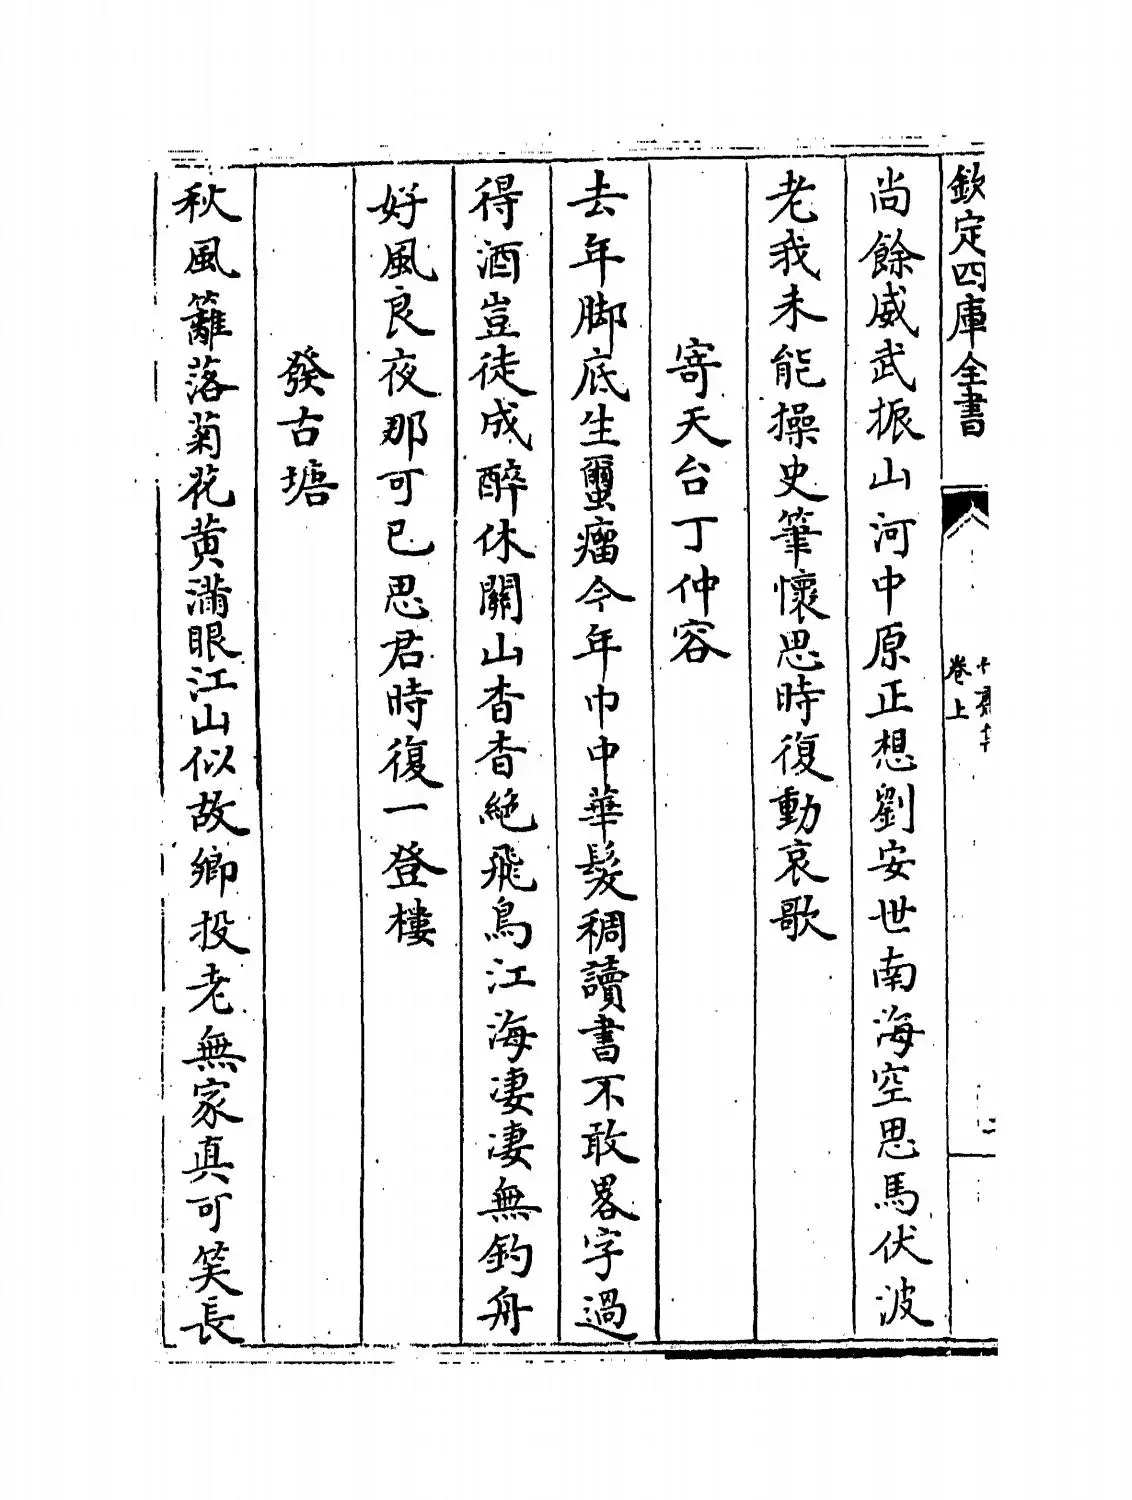 欽定四庫全書
卷上
尚餘威武振山河中原正想劉安世南海空思馬伏波
老我未能操史筆懷思時復動哀歌
寄天台丁仲容
去年脚底生𤫩瘤今年巾中華髮稠讀書不敢畧字過
得酒豈徒成醉休關山杳杳絕飛鳥江海凄凄無釣舟
好風良夜那可已思君時復一登樓
發古塘
秋風籬落菊花黄滿眼江山似故鄉投老無家真可笑長